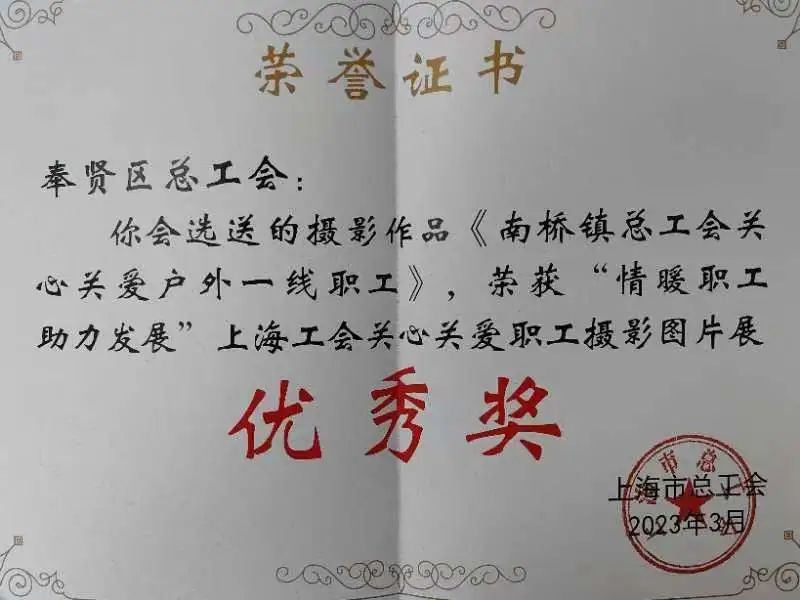 荣誉证书
奉贤区总工会：
你会选送的摄影作品《南桥镇总工会关
心关爱户外一线职工》，荣获“情暖职工
助力发展”上海工会关心关爱职工摄影图片展
优秀奖
上海市总工会
2023年3月